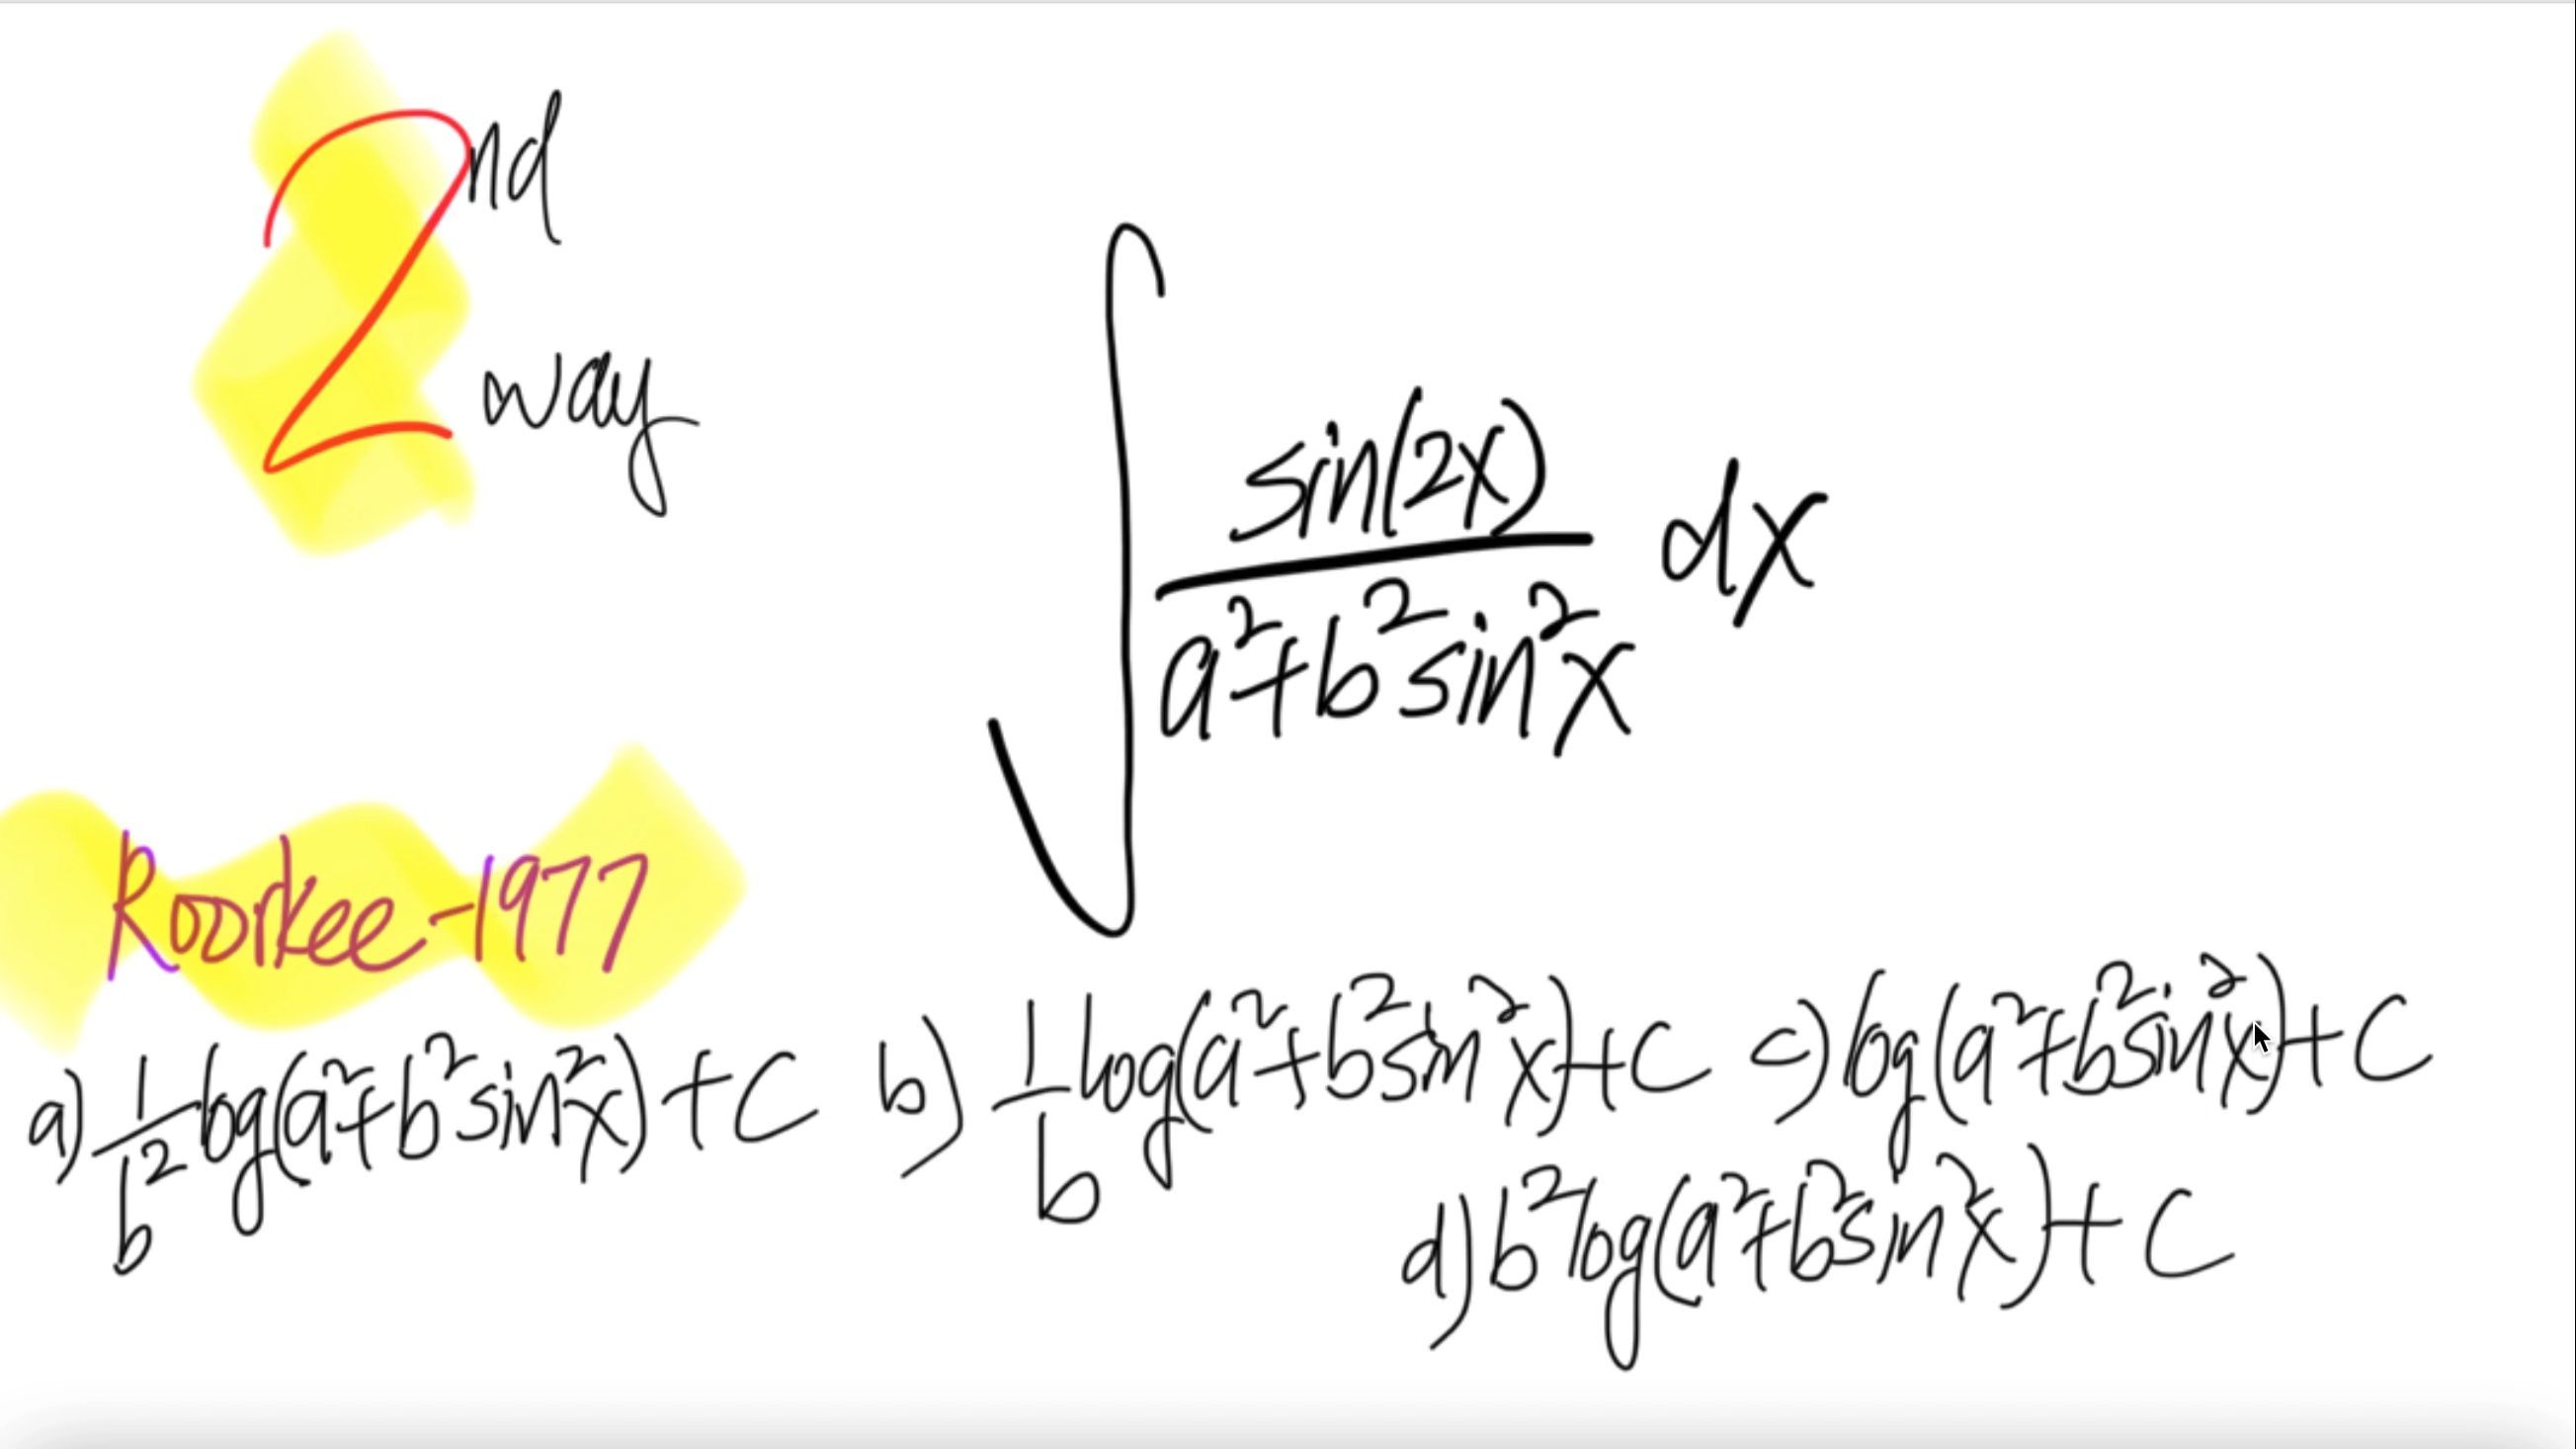 2nd
way
∫ sin(2x)/(a²+b²sin²x) dx
Roorkee-1977
a) 1/b² log(a²+b²sin²x)+C b) 1/b log(a²+b²sin²x)+C c) log(a²+b²sin²x)+C
d) b² log(a²+b²sin²x)+C